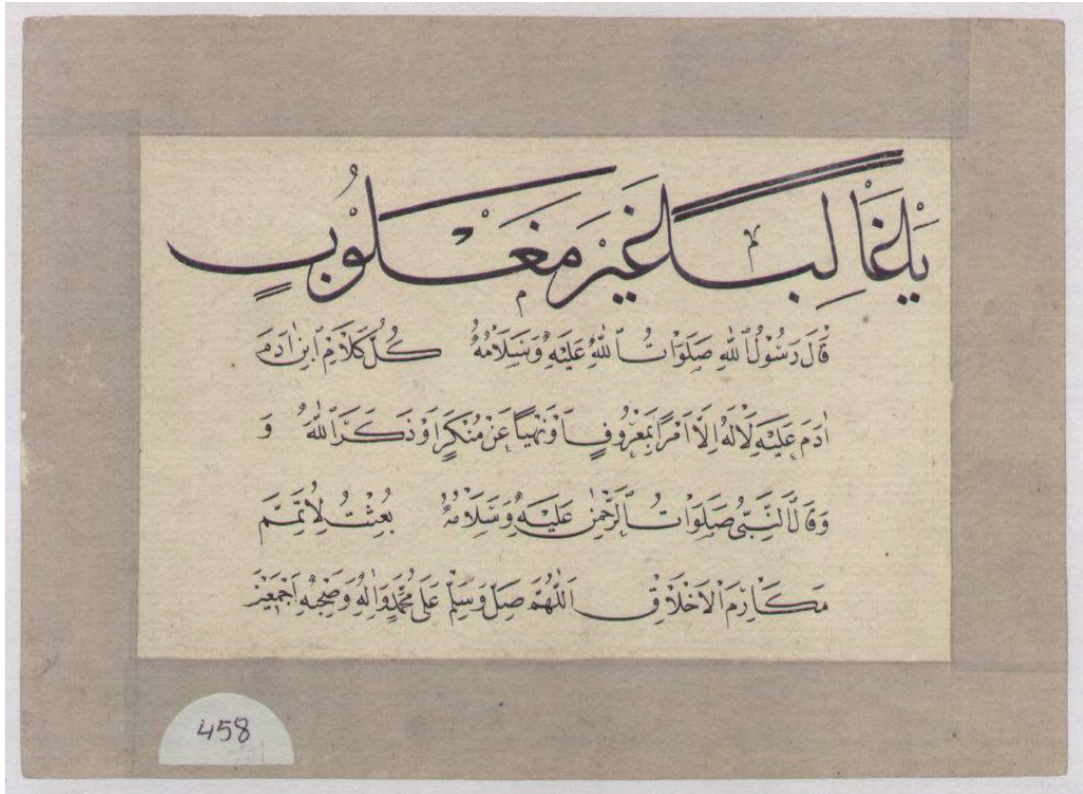 يَا غَالِبًا غَيْرَ مَغْلُوبٍ
قَالَ رَسُولُ ٱللّٰهِ صَلَوَاتُ ٱللّٰهِ عَلَيْهِ وَسَلَامُهُ كُلُّ كَلَامِ ٱبْنِ اٰدَمَ
اٰدَمَ عَلَيْهِ لَا لَهُ اِلَّا اَمْرًا بِمَعْرُوفٍ اَوْ نَهْيًا عَنْ مُنْكَرٍ اَوْ ذَكَرَ اللّٰهَ وَ
وَقَالَ ٱلنَّبِىُّ صَلَوَاتُ ٱلرَّحْمٰنِ عَلَيْهِ وَسَلَامُهُ بُعِثْتُ لِاُتَمِّمَ
مَكَارِمَ الْاَخْلَاقِ اَللّٰهُمَّ صَلِّ وَسَلِّمْ عَلَى مُحَمَّدٍ وَاٰلِهِ وَصَحْبِهِ اَجْمَعِينَ
458